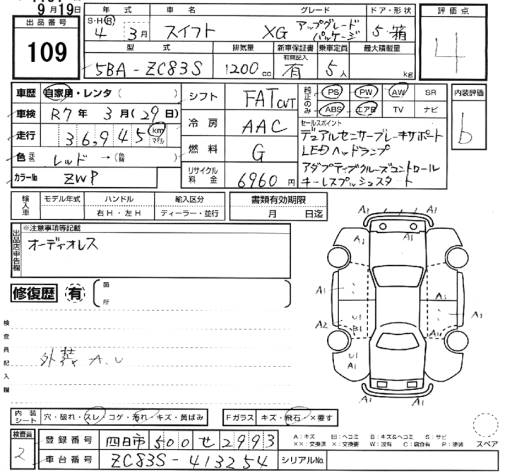 9月19日
出品番号
109
年式 車名 グレード ドア・形状
S・H(R) 4年 3月 スイフト XG アップグレードパッケージ 5 箱
型式 排気量 新車保証書 乗車定員 最大積載量
有効記入
5BA-ZC83S 1200cc 有 5人 kg
評価点
4
内装評価
b
車歴 自家用・レンタ( )
車検 R7年 3月(29日)
走行 36,945 km マイル
色 レッド→( )
カラーNo ZWP
シフト FAT CVT
冷房 AAC
燃料 G
リサイクル料金 6960円
純正のみ
PS PW AW SR
ABS エアB TV ナビ
セールスポイント
デュアルセンサーブレーキサポート
LEDヘッドランプ
アダプティブクルーズコントロール
キーレスプッシュスタート
輸入車
モデル年式 ハンドル 輸入区分 書類有効期限
右H・左H ディーラー・並行 月 日迄
出品店申告欄
※注意事項等記載
オーディオレス
修復歴 有 箇所
検査員記入欄
外装 A.U
A1 A1
A1 A1
A1 A1
A1 A1
A2 U1 A1
U1 B1 A1
A1
内装シート 穴・破れ・スレ・コゲ・汚れ・キズ・黄ばみ
Fガラス キズ・飛石・×要す
検査員
2
登録番号 四日市 500 せ 2993
車台番号 ZC83S-413254
シリアルNo.
A:キズ U:ヘコミ B:キズ&ヘコミ S:サビ
X:要交換 XX:交換済 W:波有 C:腐食有 P:塗装
スペア